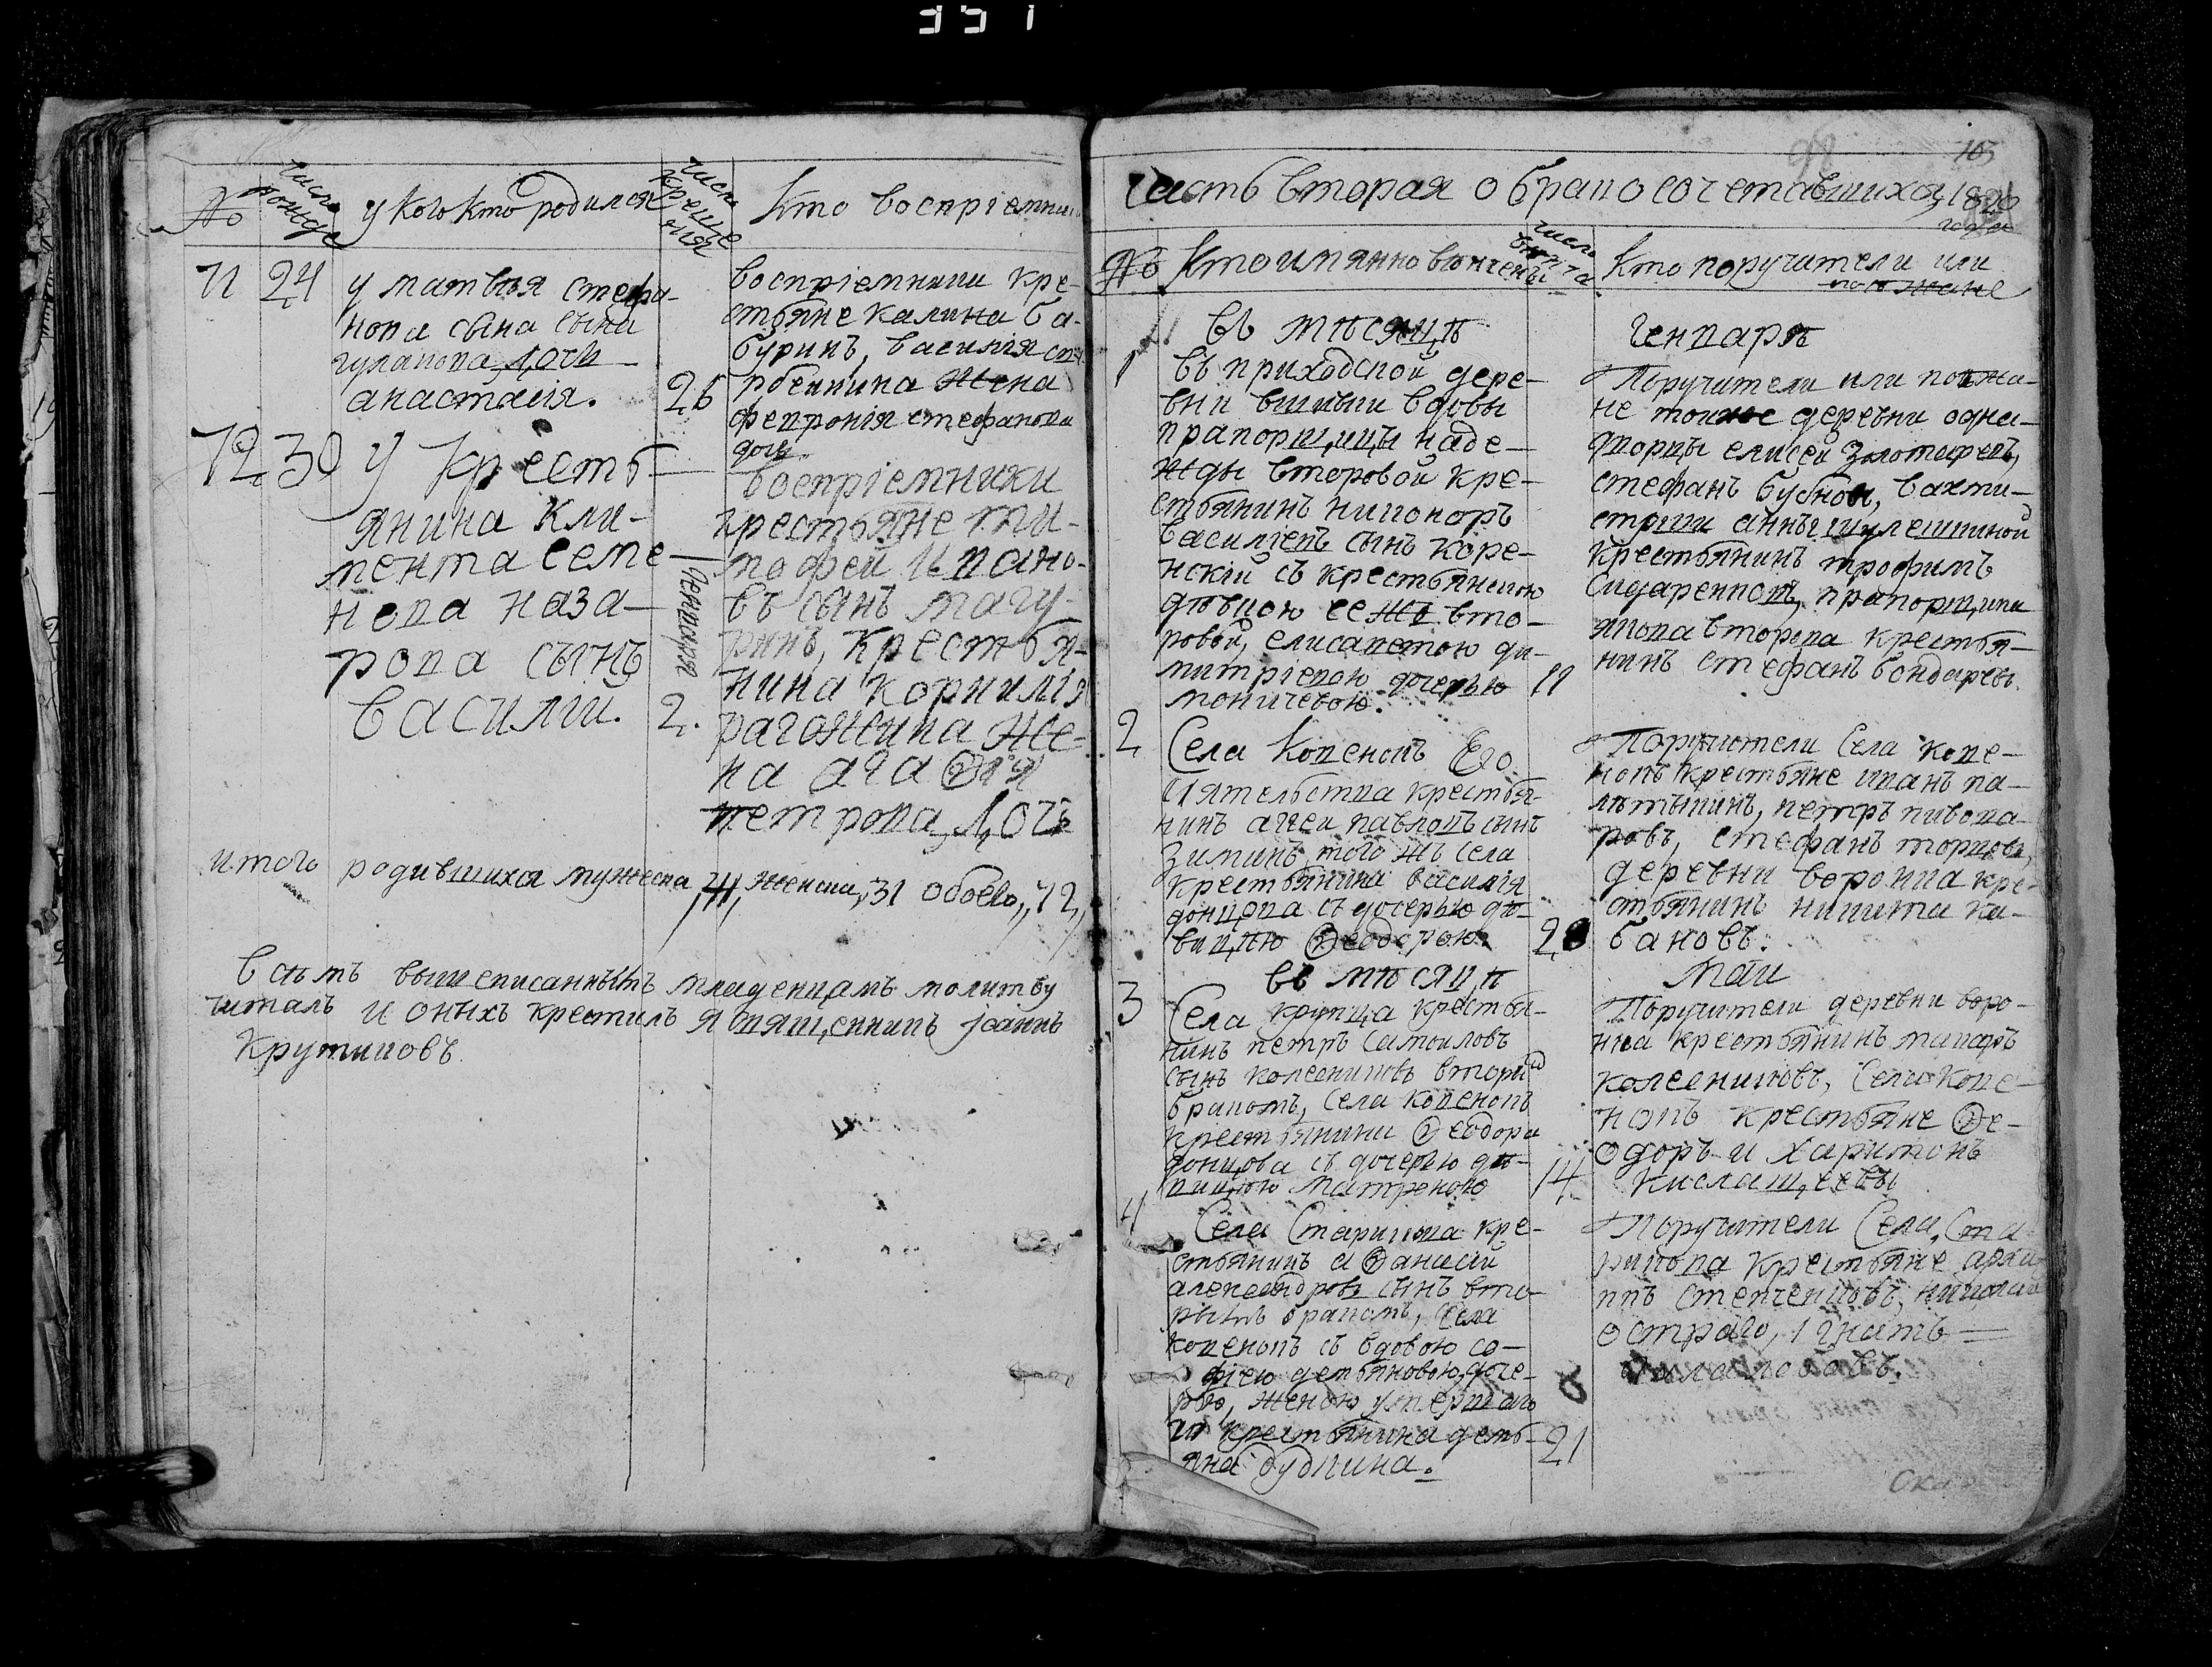 351
№
число рожде
у кого кто родился
число креще ния
Кто воспріемни
71 24 у матвѣя стефа-
нова сына сына
дочь
анастасія.
26
воспріемники кре-
стьяне калина ба-
буринъ, василія
жена
февронія стефанова
дочь
72 30 У Кресть-
янина Кли-
мента Семе-
нова наза-
рова сынъ
Василий.
Генваря
2.
воспріемники
крестьяне ти-
мофей Ивано-
въ сынъ магу-
ринъ, крестья-
нина Корнилія
рагожина же-
на агаѳія
петрова дочь
итого родившихся мужеска 41, женска, 31 обоего, 72,
Всѣмъ вышеписаннымъ младенцамъ молитву
читалъ и оныхъ крестилъ я священникъ Іоаннъ
Крутиковъ
98
105
Часть вторая о бракосочетавшихся, 1820
года
№
Кто имянно вѣнчены
число вѣнча
Кто поручители или
поѣжане
въ мѣсяцѣ
Генварѣ
1 въ приходской дере-
вни вдовы
прапорщицы наде-
жды второвой кре-
стьянинъ никоноръ
василіевъ сынъ коре-
нскій съ крестьянскою
дѣвкою ее жъ вто-
ровой, елисаветою ди-
митріевою дочерью
моничевою.
11
Поручители или поѣжа-
не тоижъ деревни одно-
дворцы елисей золотаревъ,
стефанъ бубновъ, вахми-
стрши анны
крестьянинъ трофимъ
прапорщика
второва крестья-
нинъ стефанъ бондаревъ.
2 Села Копеновъ Его
Сіятельства крестья-
нинъ аггеи павловъ сынъ
Зиминъ, того жъ села
крестьянина василія
донцова съ дочерью дѣ-
вицею Ѳеодорою.
2
Поручители Села копе-
новъ крестьяне иванъ па-
петръ пивова-
ровъ, стефанъ торцовъ,
деревни воронца кре-
стьянинъ никита ка-
бановъ.
въ мѣсяцѣ
Маи
3 Села крестья-
нинъ петръ Самоиловъ
сынъ колесниковъ вторый
бракомъ, Села копеновъ
крестьянина Ѳеодора
донцова съ дочерью дѣ-
вицею матреною
14
Поручители деревни воро-
нца крестьянинъ макаръ
колесниковъ, Села Копе-
новъ крестьяне Ѳе-
одоръ и харитонъ
Кислащеевы
4 Села Старикова кре-
стьянинъ аѳанасій
александровъ сынъ вто-
рымъ бракомъ, Села
копеновъ съ вдовою со-
фіею демьяновою доче-
рью, женою умершаго
крестьянина демь-
яна дудкина.
21
Поручители Села Ста-
рикова крестьяне архи-
ппъ николай
остраго, игнатъ